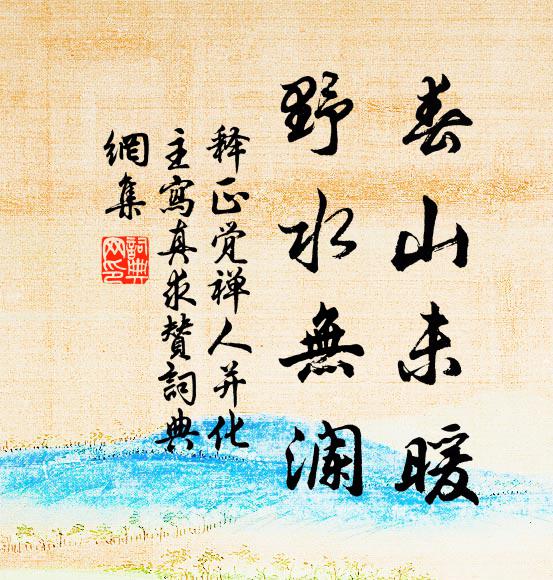 春山未暖
野水無澜
释正觉禅人并化
主寫真求贊詞典
網集
詞典
网印